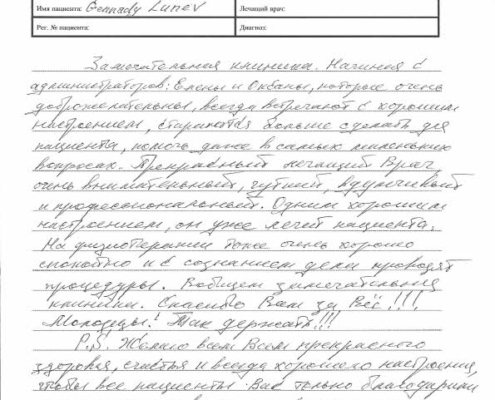 Имя пациента: Gennady Lunev Лечащий врач:
Рег. № пациента: Диагноз:
Замечательная клиника. Начиная с
администраторов: Елены и Оксаны, которые очень
доброжелательны, всегда встречают с хорошим
настроением, стараются больше сделать для
пациента, помочь даже в самых маленьких
вопросах. Прекрасный лечащий Врач
очень внимательный, чуткий, вдумчивый
и профессиональный. Одним хорошим
настроением, он уже лечит пациента.
На физиотерапии тоже очень хорошо
спокойно и с сознанием дела проводят
процедуры. Вобщем замечательная
клиника. Спасибо Вам за Всё!!!
Молодцы! Так держать!!!
P.S. Желаю вам Всем прекрасного
здоровья, счастья и всегда хорошего настроения,
чтобы все пациенты Вас только благодарили